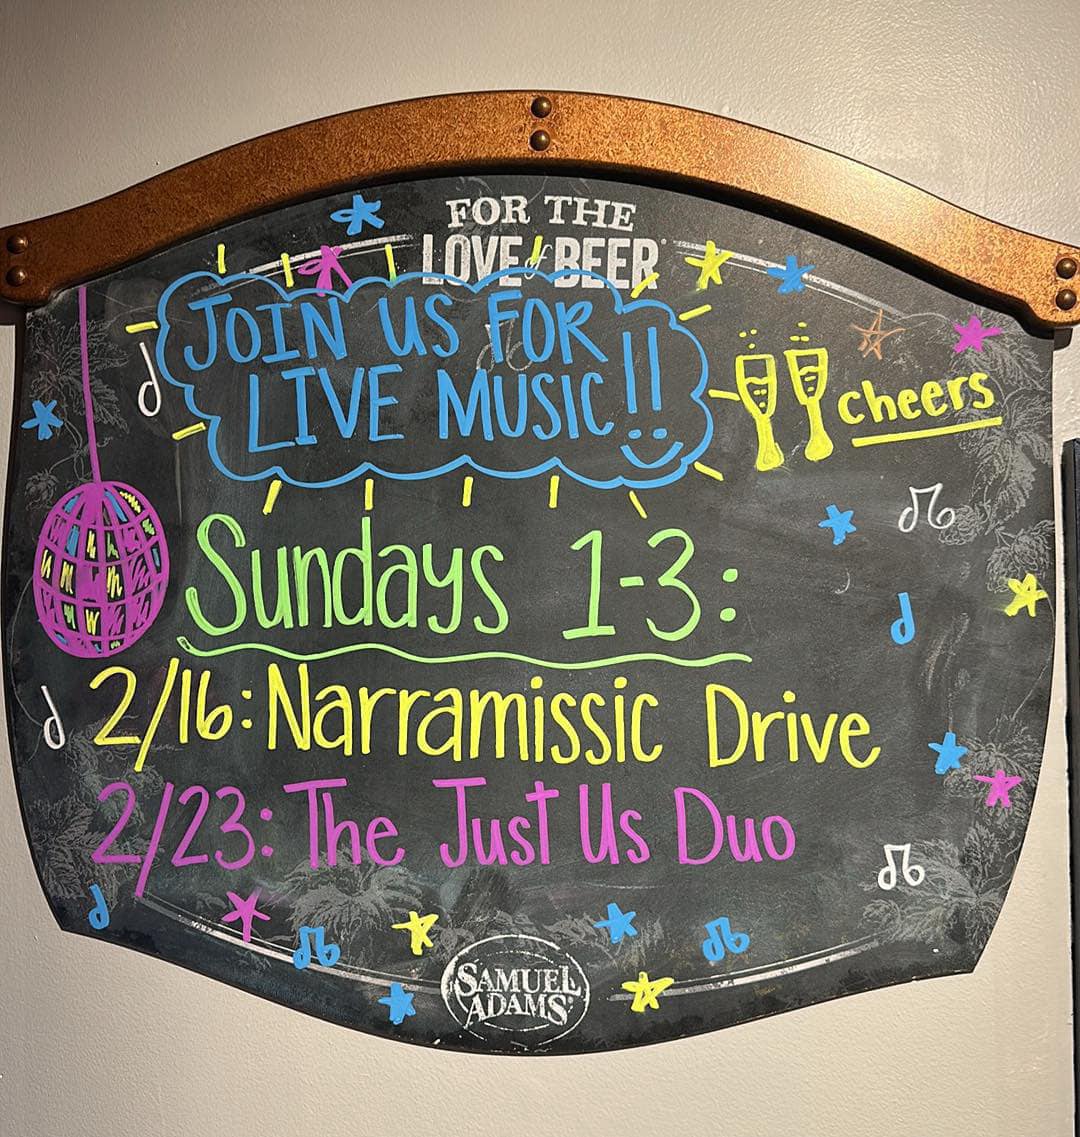 FOR THE
LOVE of BEER®
JOIN US FOR
LIVE MUSIC!!
cheers
Sundays 1-3:
2/16: Narramissic Drive
2/23: The Just Us Duo
SAMUEL
ADAMS®